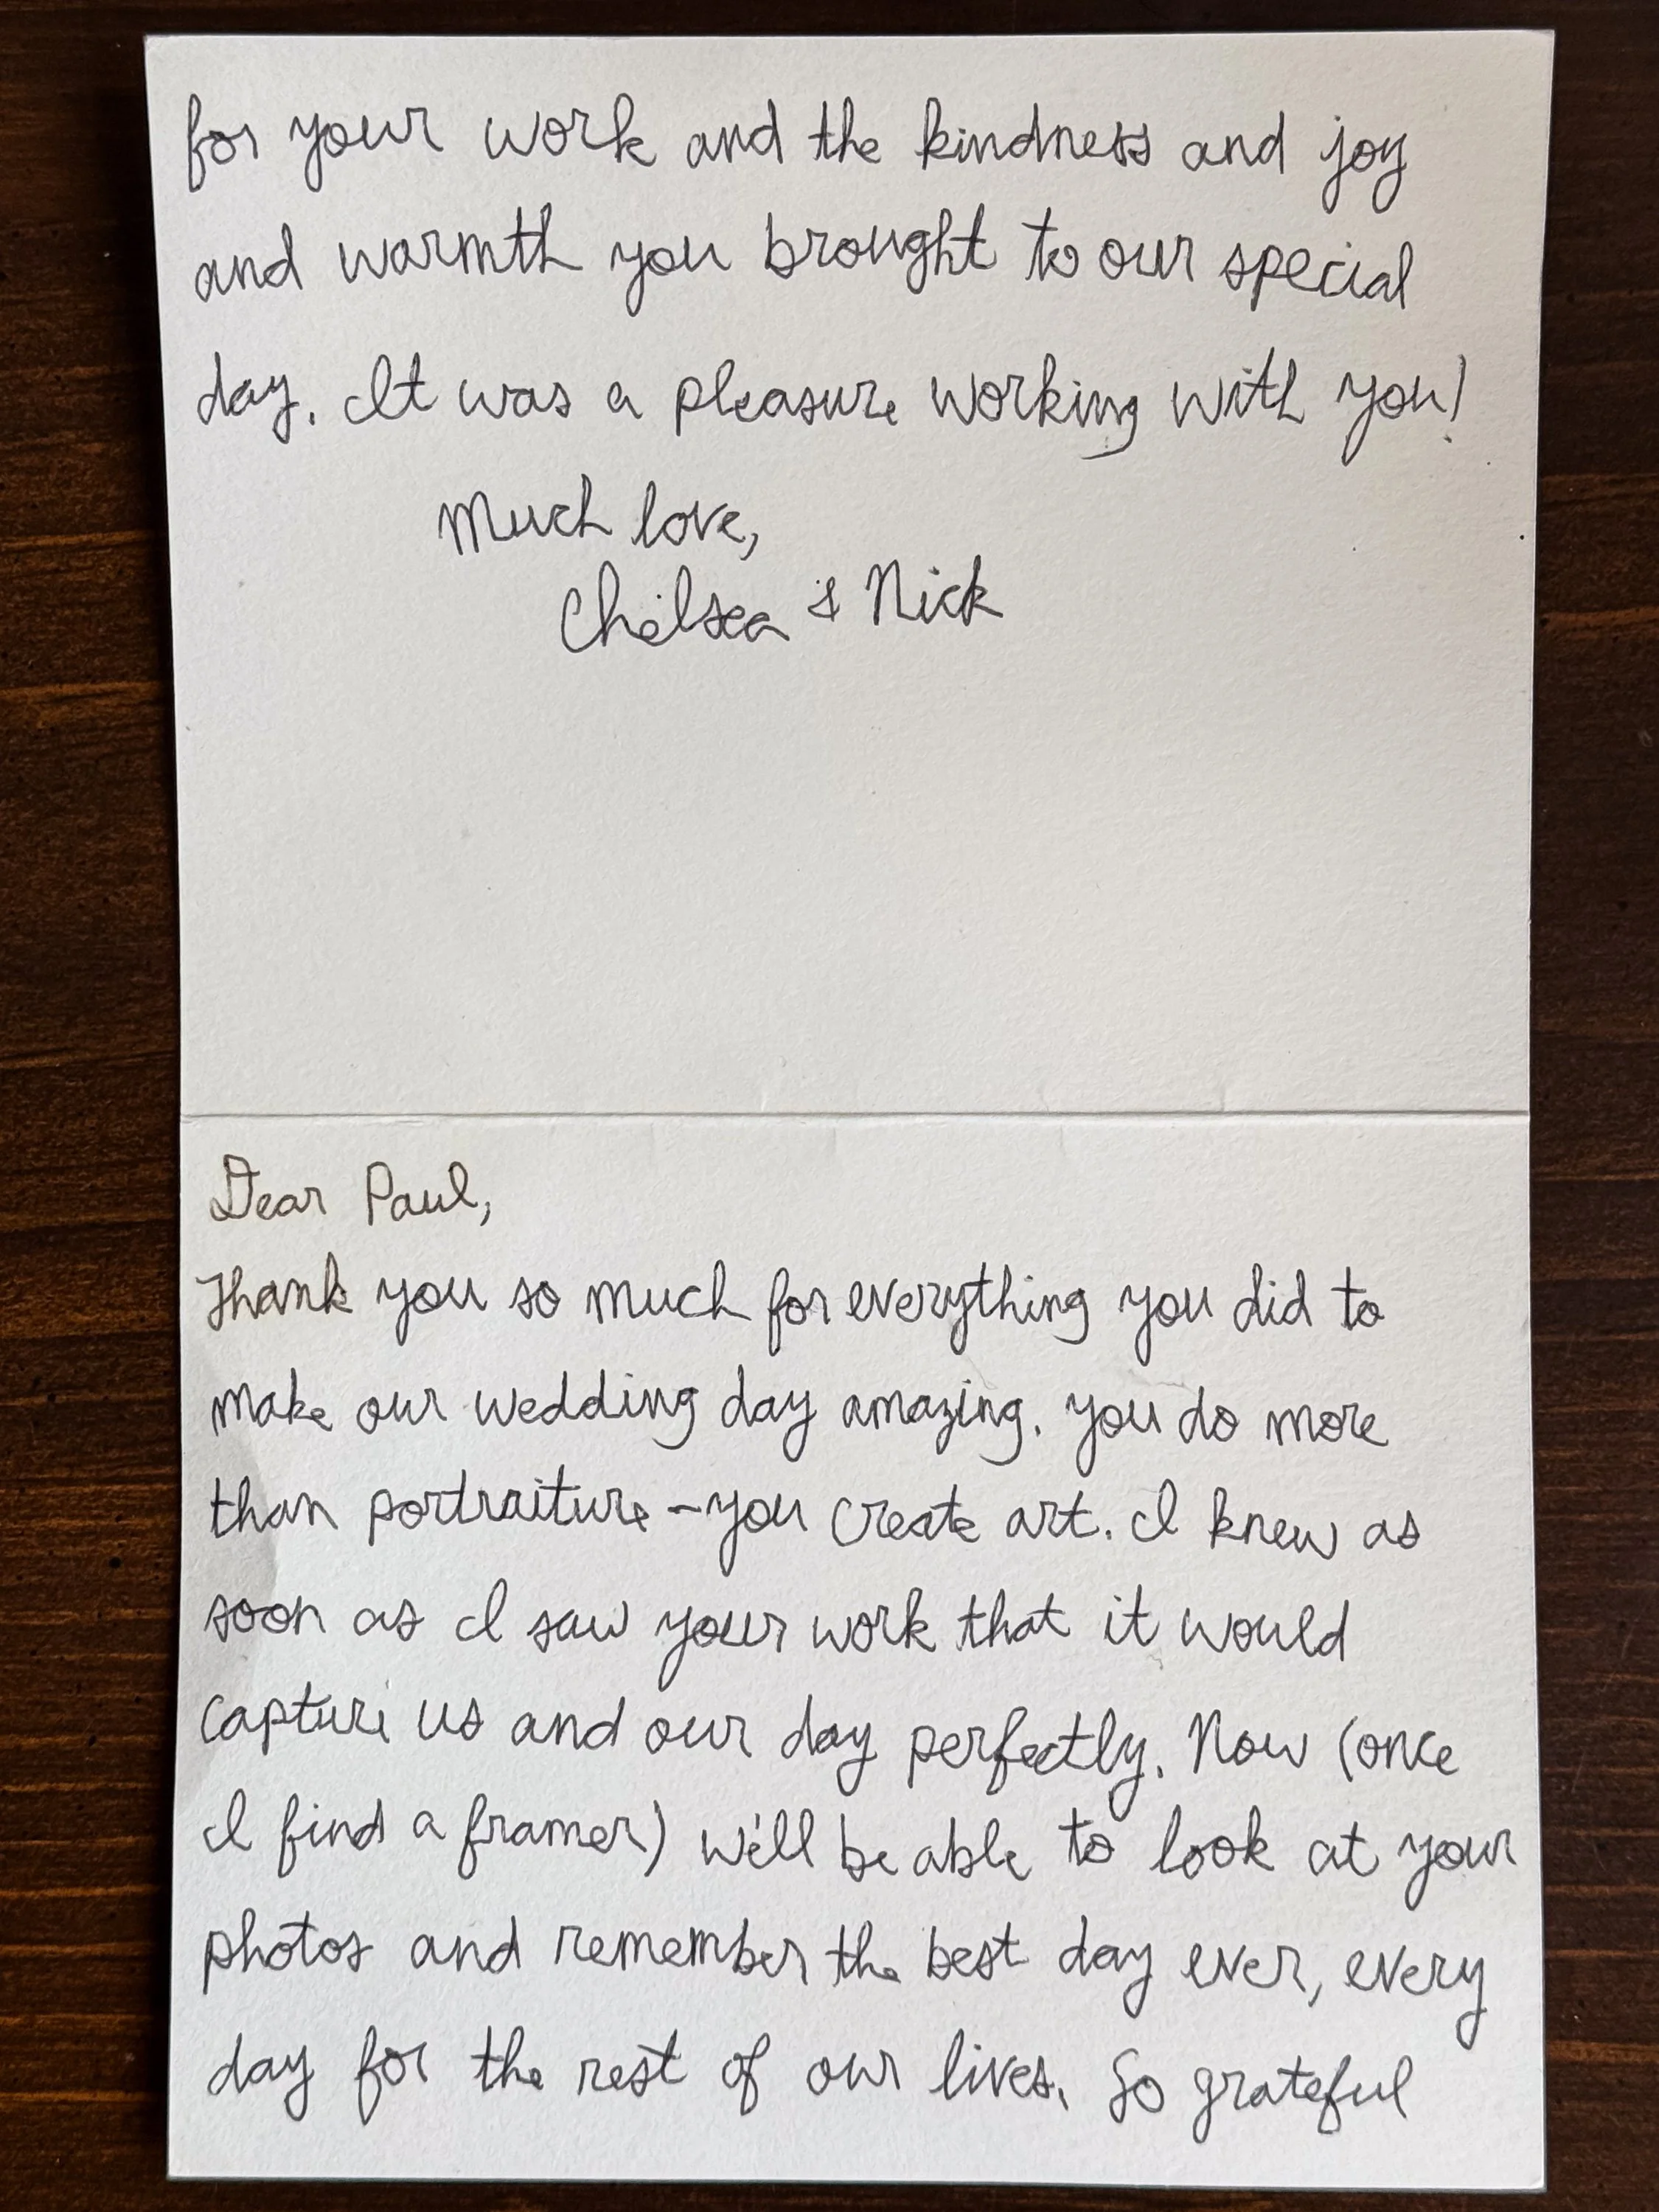 Dear Paul,
Thank you so much for everything you did to
make our wedding day amazing. you do more
than portraiture - you create art. I knew as
soon as I saw your work that it would
capture us and our day perfectly. Now (once
I find a framer) we'll be able to look at your
photos and remember the best day ever, every
day for the rest of our lives. So grateful
for your work and the kindness and joy
and warmth you brought to our special
day. It was a pleasure working with you!
Much love,
Chelsea & Nick